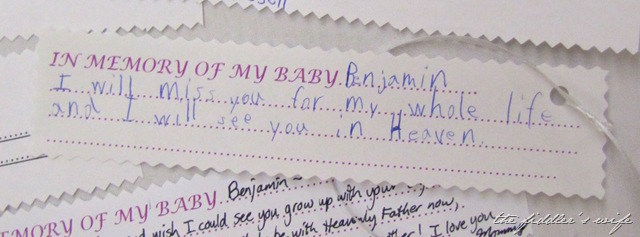 IN MEMORY OF MY BABY Benjamin
I will miss you for my whole life
and I will see you in Heaven.
EMORY OF MY BABY Benjamin ~
wish I could see you grow up with your
be with Heavenly Father now,
I love you
Mommy
the fiddler's wife